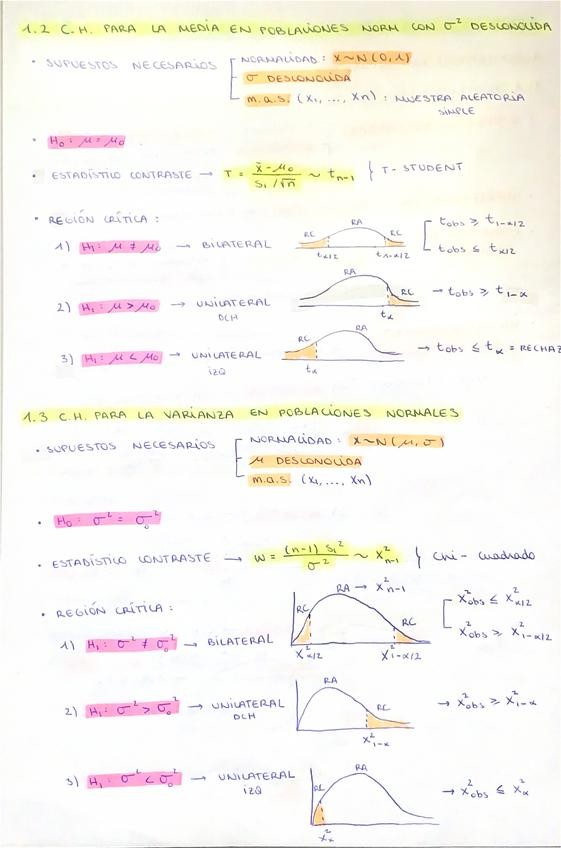 1.2 C.H. PARA LA MEDIA EN POBLACIONES NORM CON σ² DESCONOCIDA
· SUPUESTOS NECESARIOS NORMALIDAD: X~N(0,1)
σ DESCONOCIDA
m.a.s. (X1, ..., Xn) : MUESTRA ALEATORIA
SIMPLE
· H0: μ = μ0
· ESTADÍSTICO CONTRASTE → T = (x̄ - μ0) / (S1/√n) ~ tn-1 } T-STUDENT
· REGIÓN CRÍTICA :
1) H1: μ ≠ μ0 → BILATERAL RC RA RC tα/2 t1-α/2 tobs ≥ t1-α/2
tobs ≤ tα/2
2) H1: μ > μ0 → UNILATERAL DCH RA RC tα → tobs ≥ t1-α
3) H1: μ < μ0 → UNILATERAL IZQ RC RA tα → tobs ≤ tα = RECHAZ
1.3 C.H. PARA LA VARIANZA EN POBLACIONES NORMALES
· SUPUESTOS NECESARIOS NORMALIDAD: X~N(μ,σ)
μ DESCONOCIDA
m.a.s. (X1, ..., Xn)
· H0: σ² = σ0²
· ESTADÍSTICO CONTRASTE → W = (n-1) S1² / σ² ~ X²n-1 } Chi-cuadrado
· REGIÓN CRÍTICA :
1) H1: σ² ≠ σ0² → BILATERAL RC RA → X²n-1 RC X²α/2 X²1-α/2 X²obs ≤ X²α/2
X²obs ≥ X²1-α/2
2) H1: σ² > σ0² → UNILATERAL DCH RA RC X²1-α → X²obs ≥ X²1-α
3) H1: σ² < σ0² → UNILATERAL IZQ RC RA X²α → X²obs ≤ X²α